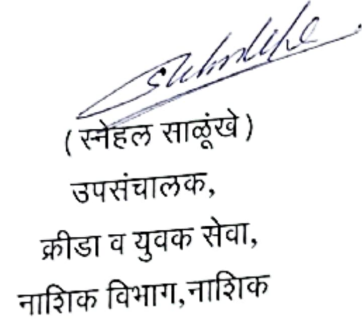 (स्नेहल साळूंखे)
उपसंचालक,
क्रीडा व युवक सेवा,
नाशिक विभाग,नाशिक